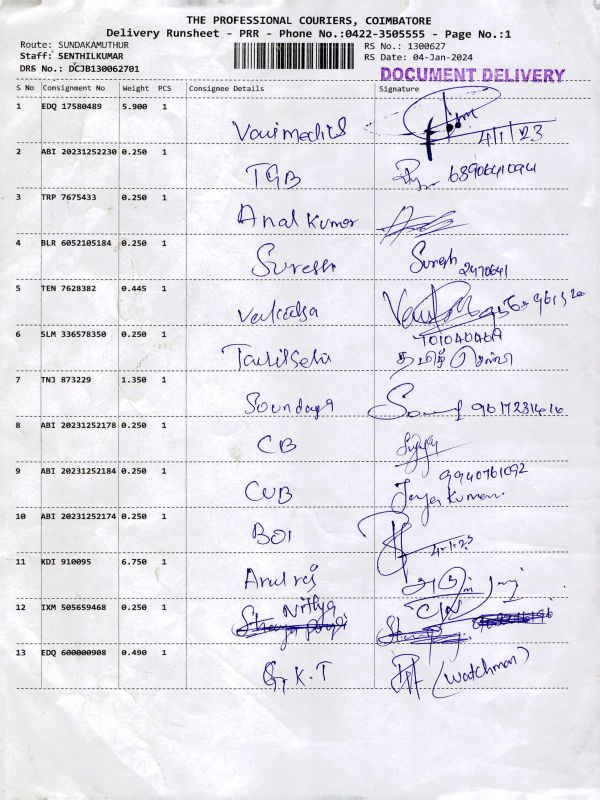 THE PROFESSIONAL COURIERS, COIMBATORE
Delivery Runsheet - PRR - Phone No.:0422-3505555 - Page No.:1
Route: SUNDAKAMUTHUR RS No.: 1300627
Staff: SENTHILKUMAR RS Date: 04-Jan-2024
DRS No.: DCJB130062701 DOCUMENT DELIVERY
S No Consignment No Weight PCS Consignee Details Signature
1 EDQ 17580489 5.900 1
4/1/23
2 ABI 20231252230 0.250 1
TGB
3 TRP 7675433 0.250 1
Anal Kumar
4 BLR 6052105184 0.250 1
Suresh Suresh
2470641
5 TEN 7628382 0.445 1
6 SLM 336578350 0.250 1
Tamilselvi தமிழ் செல்வி
7 TNJ 873229 1.350 1
Soundarya
8 ABI 20231252178 0.250 1
CB
9 ABI 20231252184 0.250 1
9940761092
CUB Jaya Kumar.
10 ABI 20231252174 0.250 1
BOI 4-1-23
11 KDI 910095 6.750 1
Arulraj
12 IXM 505659468 0.250 1
Nithya
13 EDQ 600000908 0.490 1
K.T (watchman)